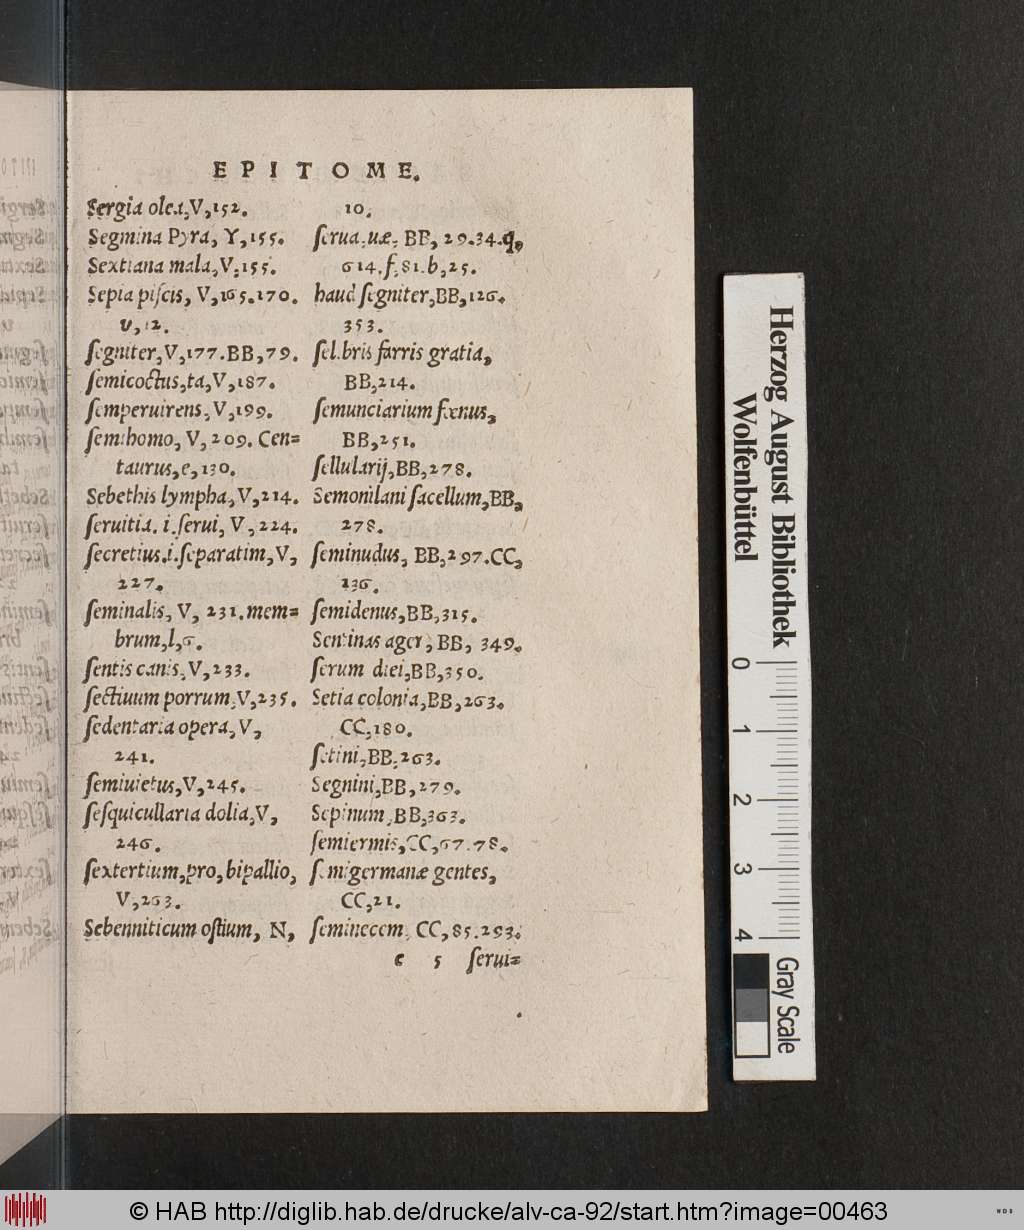 EPITOME.
Sergia olea, V, 152.
Segmina Pyra, Y, 155.
Sextiana mala, V, 155.
Sepia piſcis, V, 165. 170.
v, 12.
ſegniter, V, 177. BB, 79.
ſemicoctus, ta, V, 187.
ſemperuirens, V, 199.
ſemihomo, V, 209. Cen=
taurus, e, 130.
Sebethis lympha, V, 214.
ſeruitia. i. ſerui, V, 224.
ſecretius. i. ſeparatim, V,
227.
ſeminalis, V, 231. mem=
brum, l, 6.
ſentis canis, V, 233.
ſectiuum porrum, V, 235.
ſedentaria opera, V,
241.
ſemiuietus, V, 245.
ſeſquicullaria dolia, V,
246.
ſextertium, pro, bipallio,
V, 263.
Sebenniticum oſtium, N,
10.
ſerua. uæ. BB, 29. 34. q,
614. f, 81. b, 25.
haud ſegniter, BB, 126.
353.
ſel.bris farris gratia,
BB, 214.
ſemunciarium fœnus,
BB, 251.
ſellularij, BB, 278.
Semonilani ſacellum, BB,
278.
ſeminudus, BB, 297. CC,
136.
ſemidenus, BB, 315.
Sentinas ager, BB, 349.
ſerum diei, BB, 350.
Setia colonia, BB, 263.
CC, 180.
ſetini, BB, 263.
Segnini, BB, 279.
Sepinum, BB, 363.
ſemiermis, CC, 67. 78.
ſemigermanæ gentes,
CC, 21.
ſeminecem, CC, 85. 293.
e 5 ſerui=
Herzog August Bibliothek
Wolfenbüttel
0 1 2 3 4
Gray Scale
© HAB http://diglib.hab.de/drucke/alv-ca-92/start.htm?image=00463